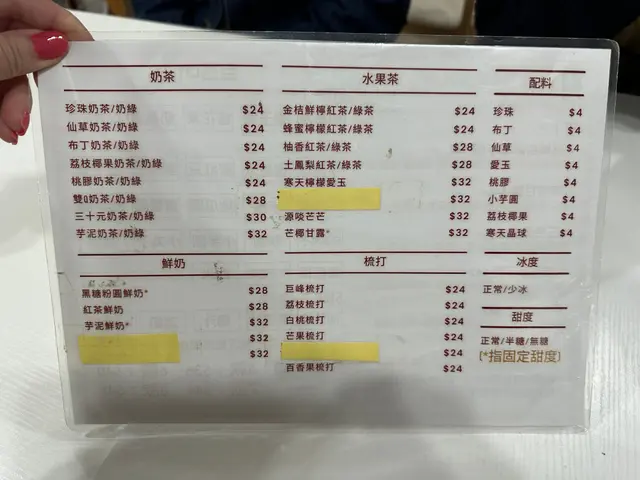 奶茶
珍珠奶茶/奶綠 $24
仙草奶茶/奶綠 $24
布丁奶茶/奶綠 $24
荔枝椰果奶茶/奶綠 $24
桃膠奶茶/奶綠 $24
雙Q奶茶/奶綠 $28
三十元奶茶/奶綠 $30
芋泥奶茶/奶綠 $32
鮮奶
黑糖粉圓鮮奶* $28
紅茶鮮奶 $28
芋泥鮮奶* $32
$32
$32
水果茶
金桔鮮檸紅茶/綠茶 $24
蜂蜜檸檬紅茶/綠茶 $24
柚香紅茶/綠茶 $28
土鳳梨紅茶/綠茶 $28
寒天檸檬愛玉 $32
$32
源啖芒芒 $32
芒椰甘露* $32
梳打
巨峰梳打 $24
荔枝梳打 $24
白桃梳打 $24
芒果梳打 $24
$24
百香果梳打 $24
配料
珍珠 $4
布丁 $4
仙草 $4
愛玉 $4
桃膠 $4
小芋圓 $4
荔枝椰果 $4
寒天晶球 $4
冰度
正常/少冰
甜度
正常/半糖/無糖
(*指固定甜度)